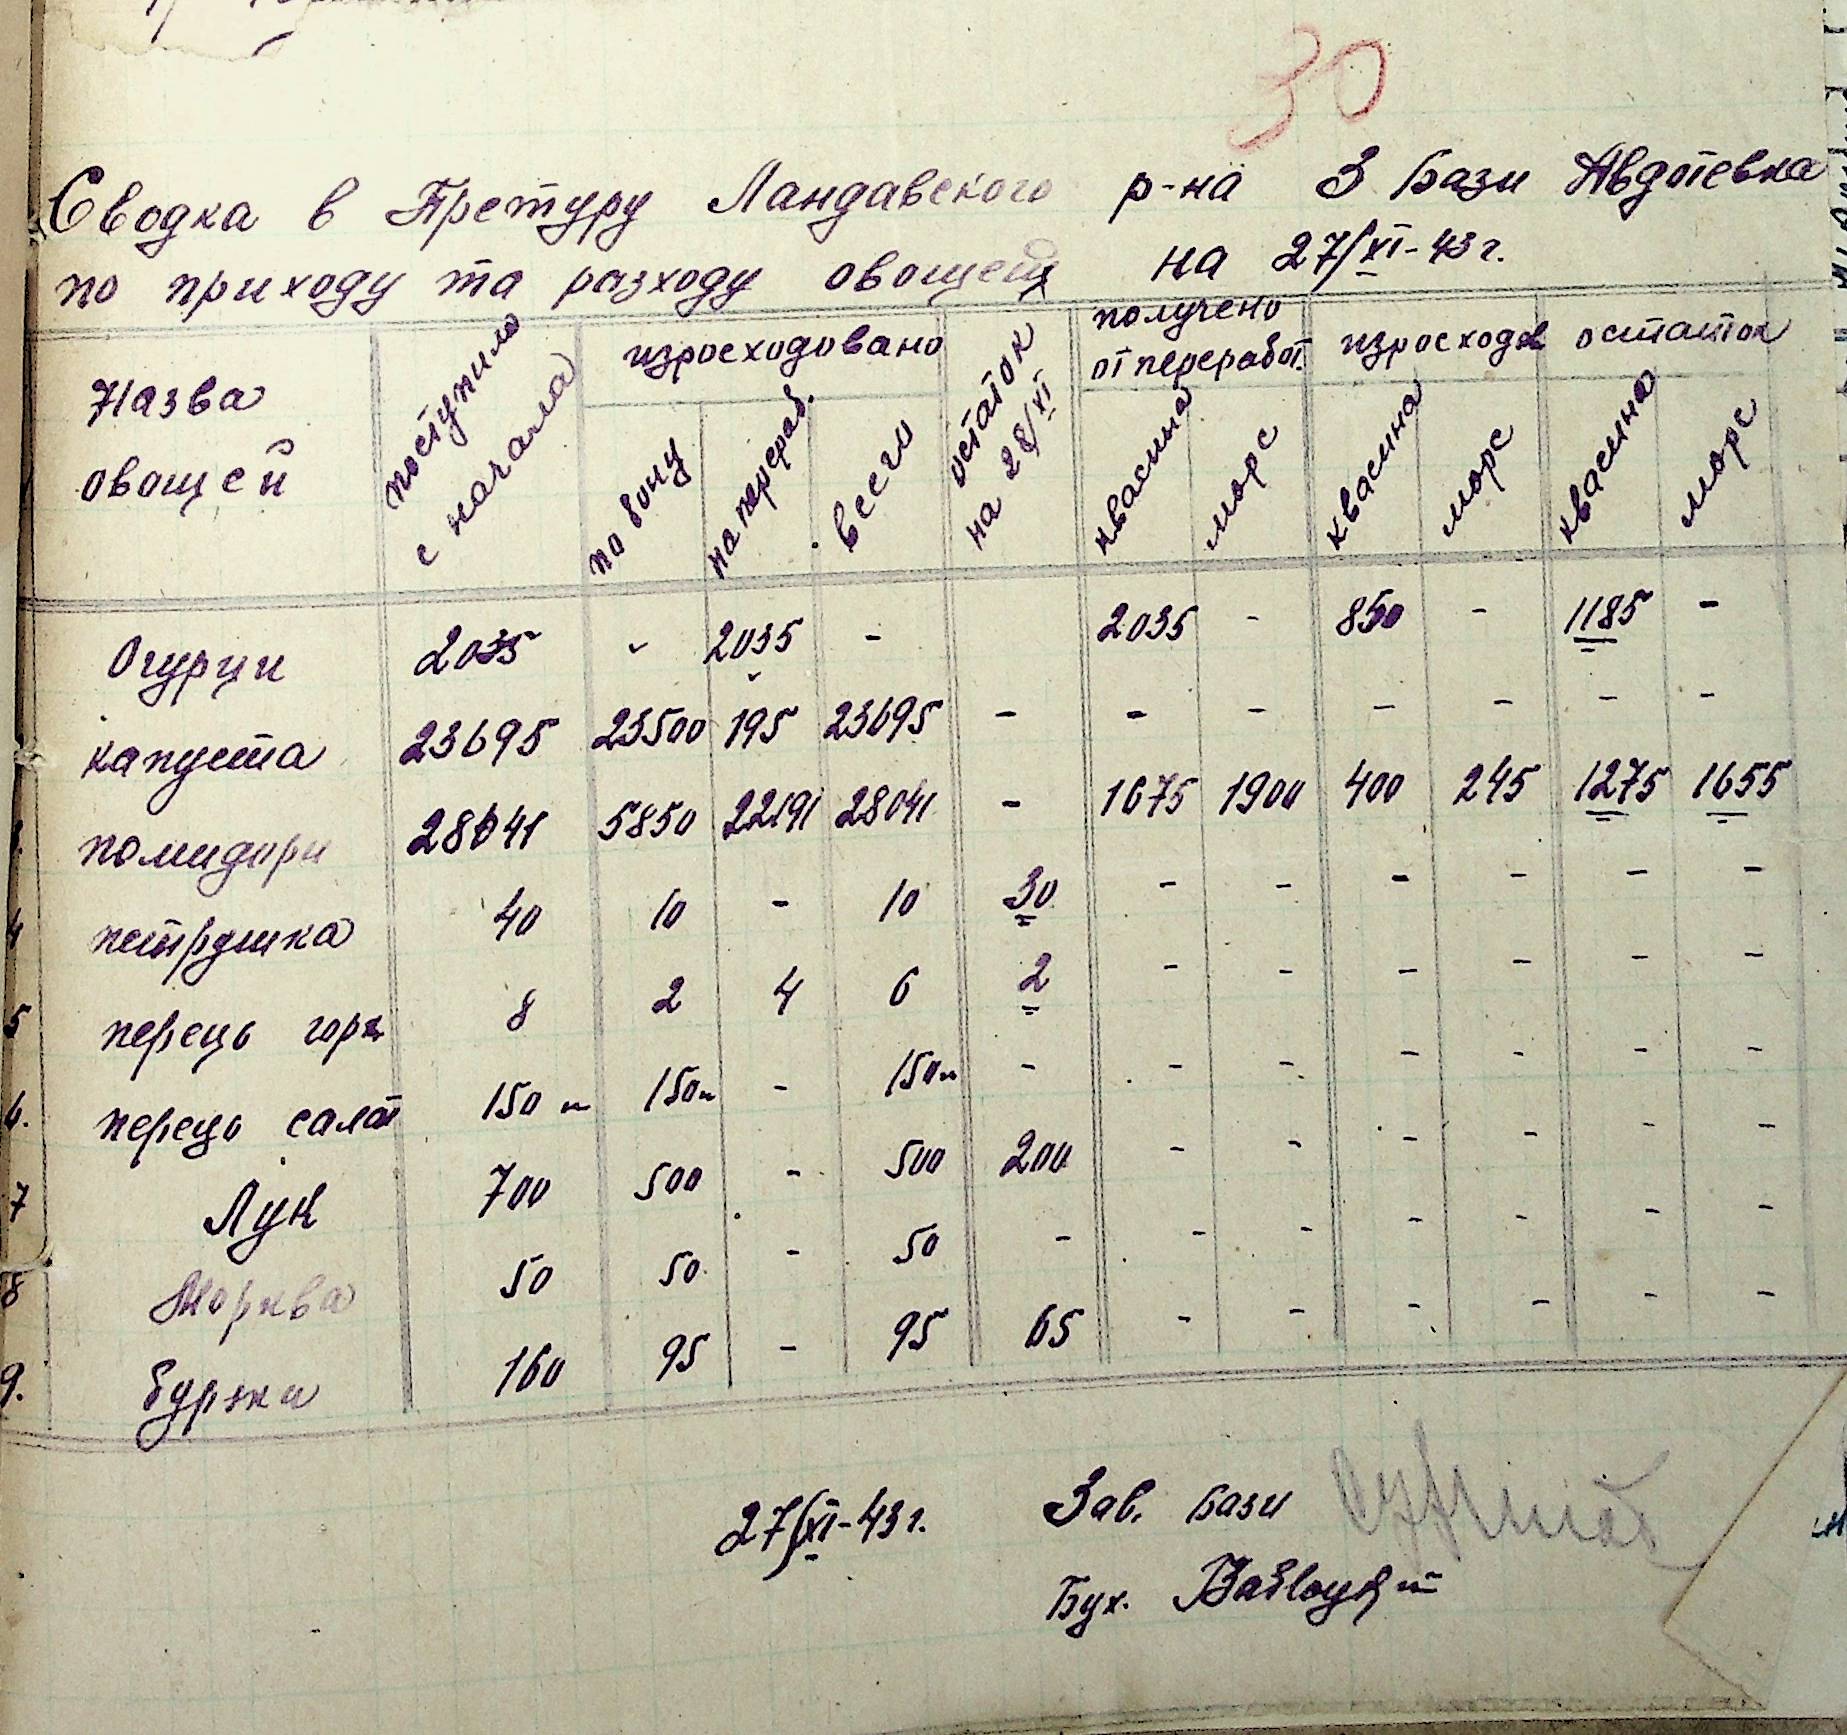 30
Сводка в Претуру Ландавского р-на З Бази Авдотевка
по приходу та разходу овощей на 27/XI-43 г.
Назва овощей | поступило с начала | изросходовано: по бону | на перераб. | всего | остаток на 28/XI | получено от переработ.: квасина | морс | изросходов: квасина | морс | остаток: квасина | морс
Огурци 2035 - 2035 - 2035 - 850 - 1185 -
капуста 23695 23500 195 23695 - - - - - - -
помидори 28041 5850 22191 28041 - 1675 1900 400 245 1275 1655
4 петрушка 40 10 - 10 30 - - - - - -
5 перець горк 8 2 4 6 2 - - - - - -
6. перець салат 150 150 - 150 - - - - - - -
7 Лук 700 500 - 500 200 - - - - - -
8 Морква 50 50 - 50 - - - - - - -
9. буряки 160 95 - 95 65 - - - - - -
27/XI-43 г. Зав. Бази
Бух.